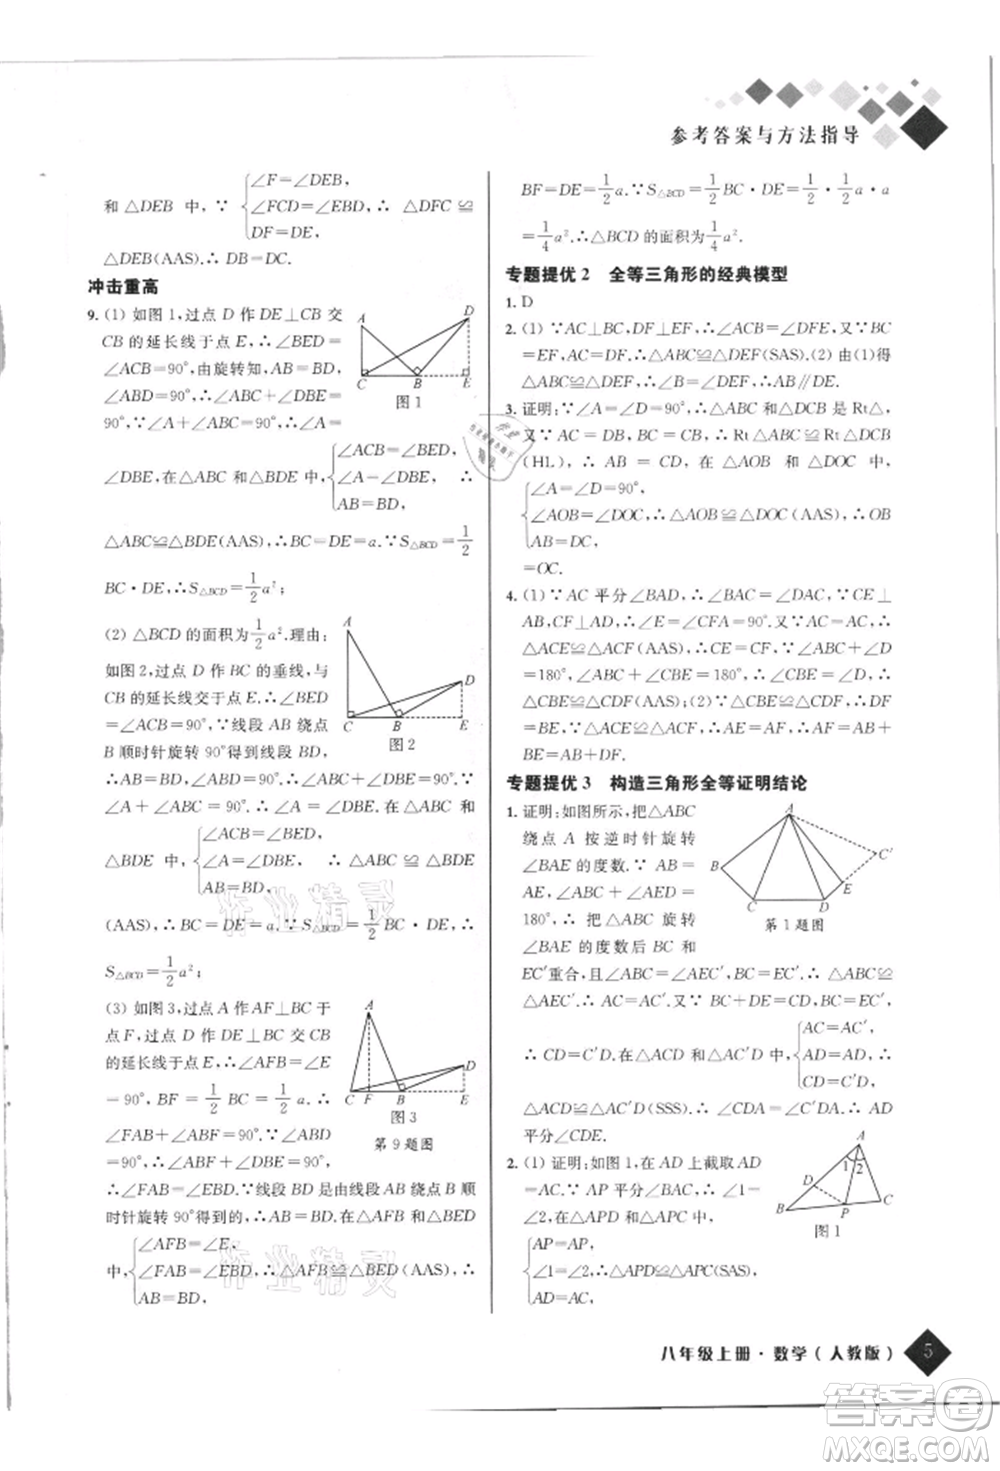 参考答案与方法指导
和 △DEB 中, ∵ {∠F=∠DEB, ∠FCD=∠EBD, DF=DE, ∴ △DFC ≌
△DEB(AAS).∴ DB=DC.
冲击重高
9. (1) 如图 1,过点 D 作 DE⊥CB 交
CB 的延长线于点 E,∴∠BED=
∠ACB=90°,由旋转知,AB=BD,
∠ABD=90°,∴∠ABC+∠DBE=
90°,∵∠A+∠ABC=90°,∴∠A=
∠DBE,在△ABC 和△BDE 中, {∠ACB=∠BED, ∠A=∠DBE, AB=BD, ∴
△ABC≌△BDE(AAS)∴BC=DE=a.∵S△BCD=1/2
BC·DE,∴S△BCD=1/2a²;
(2) △BCD 的面积为1/2a².理由:
如图 2,过点 D 作 BC 的垂线,与
CB 的延长线交于点 E.∴∠BED
=∠ACB=90°,∵线段 AB 绕点
B 顺时针旋转 90°得到线段 BD,
∴AB=BD,∠ABD=90°.∴∠ABC+∠DBE=
90°.∵∠A+∠ABC=90°.∴∠A=∠DBE.在△ABC 和
△BDE 中, {∠ACB=∠BED, ∠A=∠DBE, AB=BD, ∴ △ABC ≌ △BDE
(AAS)∴ BC = DE = a. ∵ S△BCD = 1/2BC · DE ∴
S△BCD=1/2a²;
(3) 如图 3,过点 A 作 AF⊥BC 于
点 F,过点 D 作 DE⊥BC 交 CB
的延长线于点 E,∴∠AFB=∠E
=90°, BF = 1/2 BC = 1/2 a.
∴ ∠FAB + ∠ABF = 90°. ∵ ∠ABD =
90°,∴∠ABF+∠DBE=90°,
∴∠FAB=∠EBD.∵线段 BD 是由线段 AB 绕点 B 顺
时针旋转 90°得到的,∴AB=BD,在△AFB 和△BED
中, {∠AFB=∠E, ∠FAB=∠EBD, AB=BD, ∴△AFB≌△BED(AAS),∴
A
D
C
B
E
图 1
A
D
C
B
E
图 2
A
D
C
F
B
E
图 3
第 9 题图
BF=DE=1/2a.∵S△BCD=1/2BC·DE=1/2·1/2a·a
=1/4a².∴△BCD 的面积为1/4a².
专题提优 2 全等三角形的经典模型
1. D
2. (1) ∵AC⊥BC,DF⊥EF,∴∠ACB=∠DFE,又∵BC
=EF,AC=DF,∴△ABC≌△DEF(SAS).(2) 由(1)得
△ABC≌△DEF,∴∠B=∠DEF,∴AB∥DE.
3. 证明:∵∠A=∠D=90°,∴△ABC 和△DCB 是 Rt△,
又∵AC=DB,BC=CB,∴ Rt△ABC≌Rt△DCB
(HL),∴ AB = CD, 在 △AOB 和 △DOC 中,
{∠A=∠D=90°, ∠AOB=∠DOC, AB=DC, ∴△AOB≌△DOC(AAS),∴OB
=OC.
4. (1) ∵ AC 平分∠BAD,∴∠BAC=∠DAC,∵ CE⊥
AB,CF⊥AD,∴∠CEA=∠CFA=90°.∵AC=AC,∴
△ACE≌△ACF(AAS).∴CE=CF.∵∠ABC+∠D
=180°,∠ABC+∠CBE=180°,∴∠CBE=∠D,又
∵∠CEB=∠CFD=90°,∴△CBE≌△CDF(AAS);
(2) ∵△CBE≌△CDF,∴DF
=BE.∵△ACE≌△ACF,∴AE=AF,∴AB+DF=AB+
BE=AE=AF.
专题提优 3 构造三角形全等证明结论
1. 证明:如图所示,把△ABC
绕点 A 按逆时针旋转
∠BAE 的度数.∵ AB =
AE, ∠ABC + ∠AED =
180°, ∴ 把△ABC 旋转
∠BAE 的度数后 BC 和
EC′重合,且 C′、E、D 共线,∴△ABC≌
△AEC′,∴AC=AC′,BC=EC′.又∵ BC+DE=CD,
∴ CD=C′D.在△ADC 和△ADC′中, {AC=AC′, AD=AD, CD=C′D, ∴
△ADC≌△ADC′(SSS).∴∠CDA=∠C′DA,∴ AD
平分∠CDE.
A
B
C
D
E
C′
第 1 题图
2. (1) 证明:如图 1,在 AD 上截取 AD
=AC.∵ AP 平分∠BAC, ∴∠1=
∠2,在△APD 和△APC 中,
{AP=AP, ∠1=∠2, AD=AC, ∴△APD≌△APC(SAS),
A
1
2
D
B
P
C
图 1
八年级上册·数学(人教版)
5
作业精灵
作业精灵
答案圈
MXQE.COM